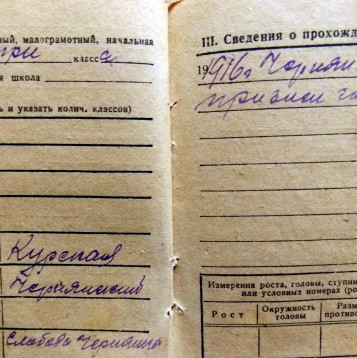 ный, малограмотный, начальная
три классa
я школа
ь и указать колич. классов)
Курская
Чернянский
слобода Чернянка
III. Сведения о прохожд
1916г Чернян
призыв
Измерения роста, головы, ступни
или условных номерах (ро
Рост
Окружность
головы
Разм
противо